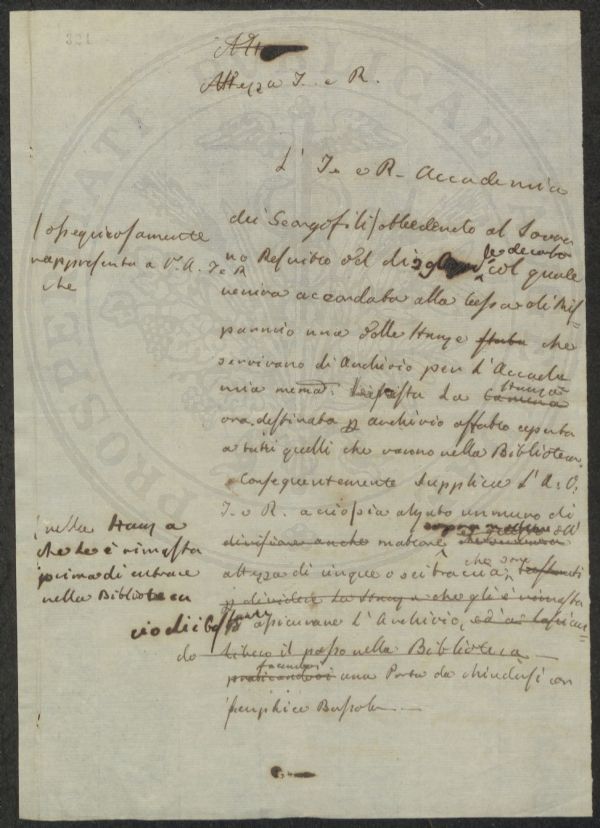 321
Altezza I. e R.
L' I. e R. Accademia
dei Georgofili obbedendo al Sovra
no Rescritto del dì 29 decorso col quale
veniva accordata alla Cassa di Ris=
parmio una delle Stanze che
servivano di Archivio per l'Accade
mia med.ª la Stanza
Camera
ora destinata p archivio affatto aperta
a tutti quelli che vanno nella Biblioteca.
Conseguentemente Supplica l'A. V.
I. e R. acciò sia alzato un muro di
divisione anche mattone dell'
altezza di cinque o sei braccia che
p dividere la Stanza che gli è rimasta
ciò di assicurare l'Archivio, ed a lascian=
do libero il passo nella Biblioteca
praticandovi facendovi una Porta da chiudersi con
semplice Bussola
ossequiosamente
rappresenta a V. A. I. e R.
che
nella Stanza
che le è rimasta
prima di entrare
nella Biblioteca